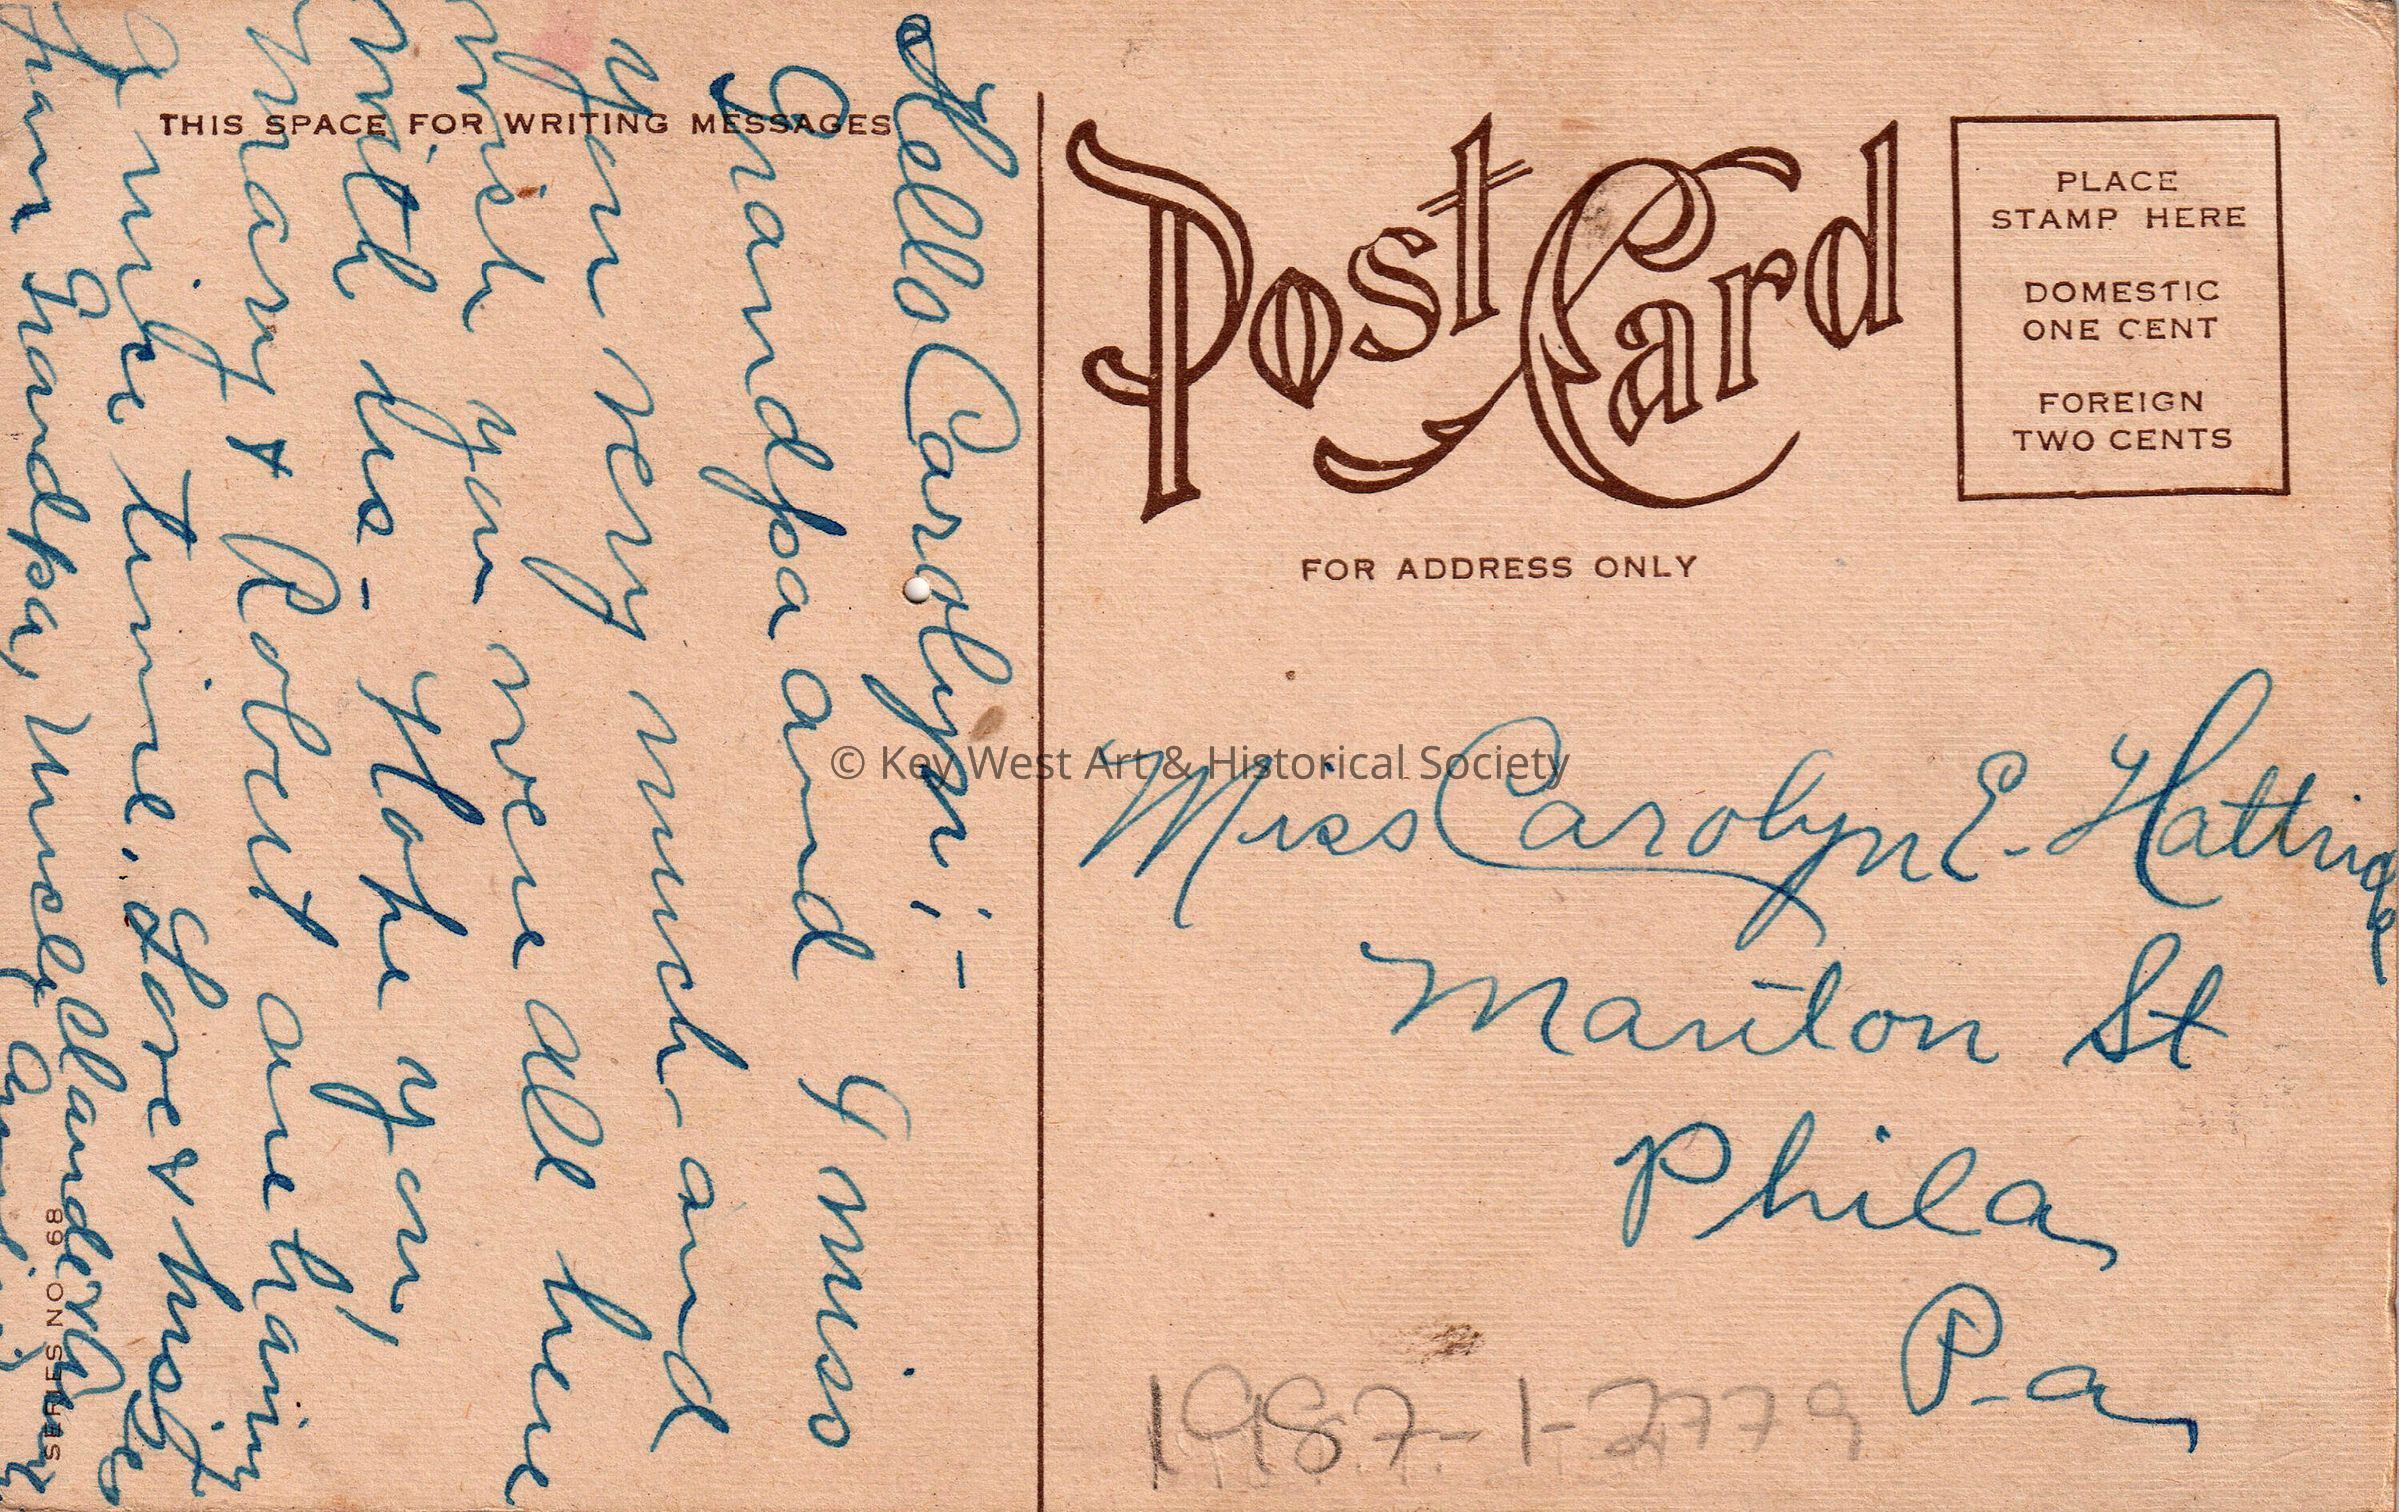 THIS SPACE FOR WRITING MESSAGES
Hello Carolyn:-
Grandpa and I miss
you very much and
wish you were all here
with us - Hope you,
Mary & Robert are having
a nice time. Love & Kisses
from Grandpa, Uncle Claude &
Post Card
FOR ADDRESS ONLY
PLACE
STAMP HERE
DOMESTIC
ONE CENT
FOREIGN
TWO CENTS
Miss Carolyn E. Hattrick
Manton St
Phila
Pa
1987-1-2779
SERIES NO. 68
© Key West Art & Historical Society